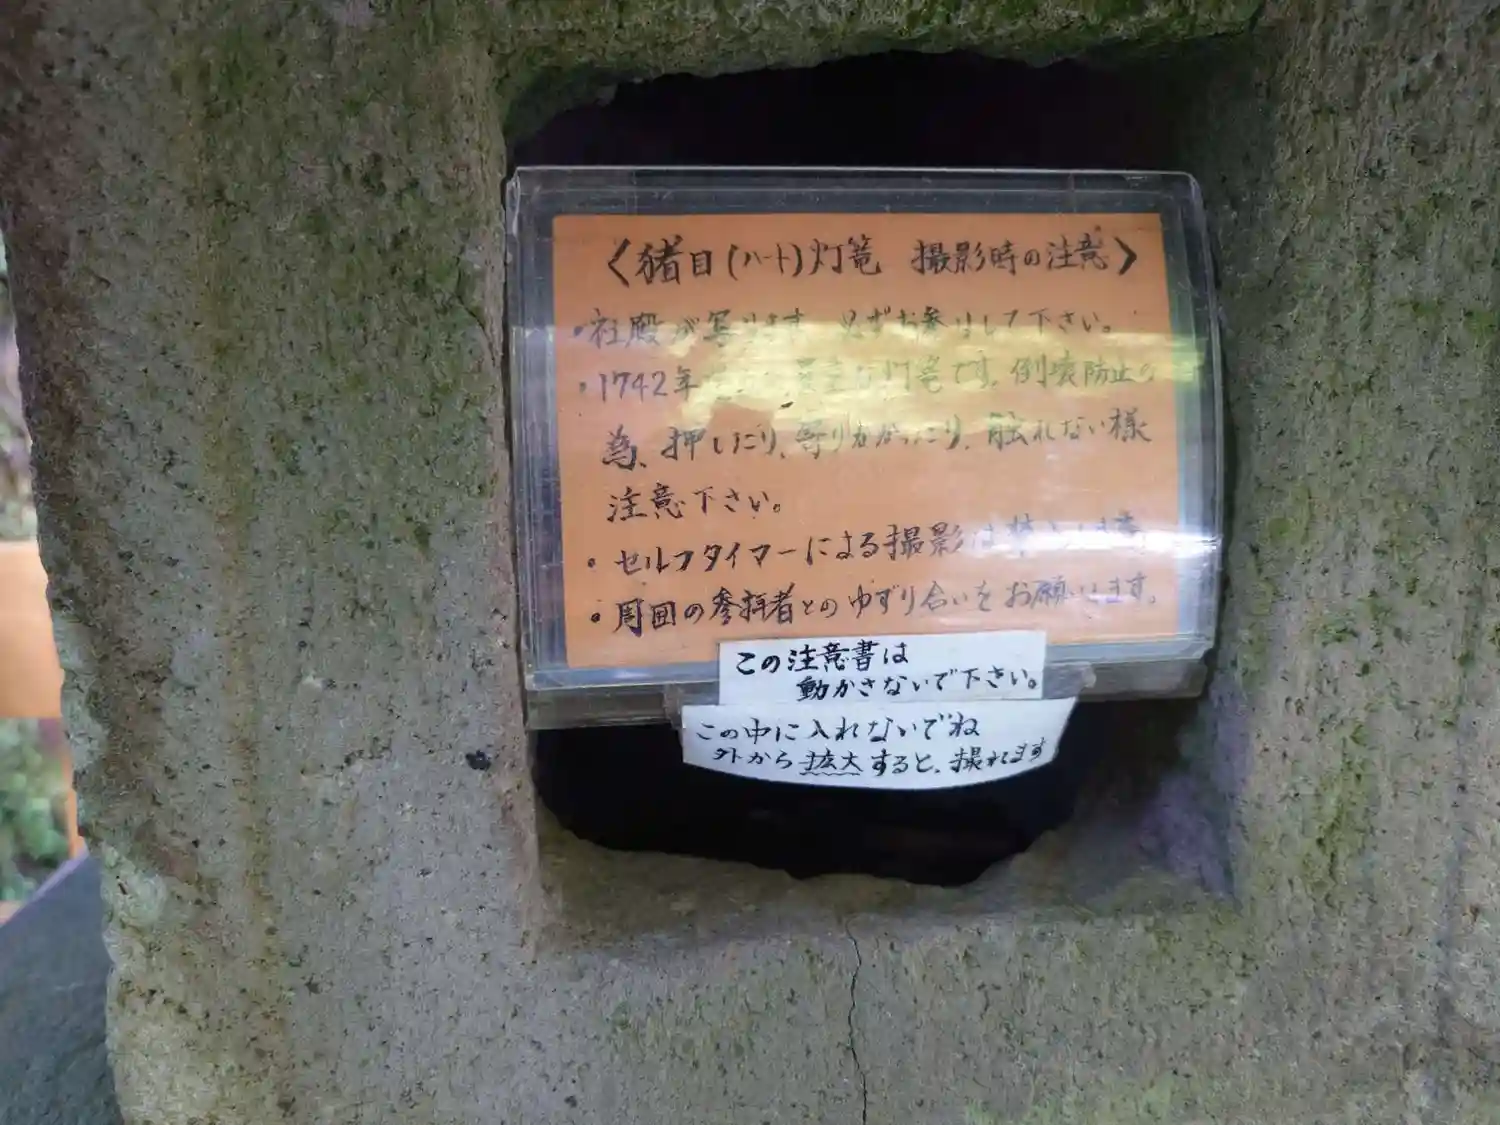 〈猪目(ハート)灯篭 撮影時の注意〉
・社殿が写ります 必ずお参りして下さい。
・1742年 灯篭です。倒壊防止の
為、押したり、寄りかかったり、触れない様
注意下さい。
・セルフタイマーによる撮影は
・周囲の参拝者とのゆずり合いをお願いします。
この注意書は
動かさないで下さい。
この中に入れないでね
外から拡大すると、撮れます